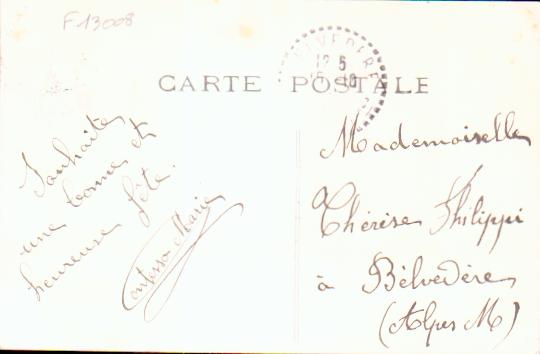 F13008
BELVEDERE
12 5
15 10
CARTE POSTALE
Souhaite
une bonne et
heureuse fête.
Contesso Marie
Mademoiselle
Thérèse Philippi
à Bélvedère
(Alpes M)